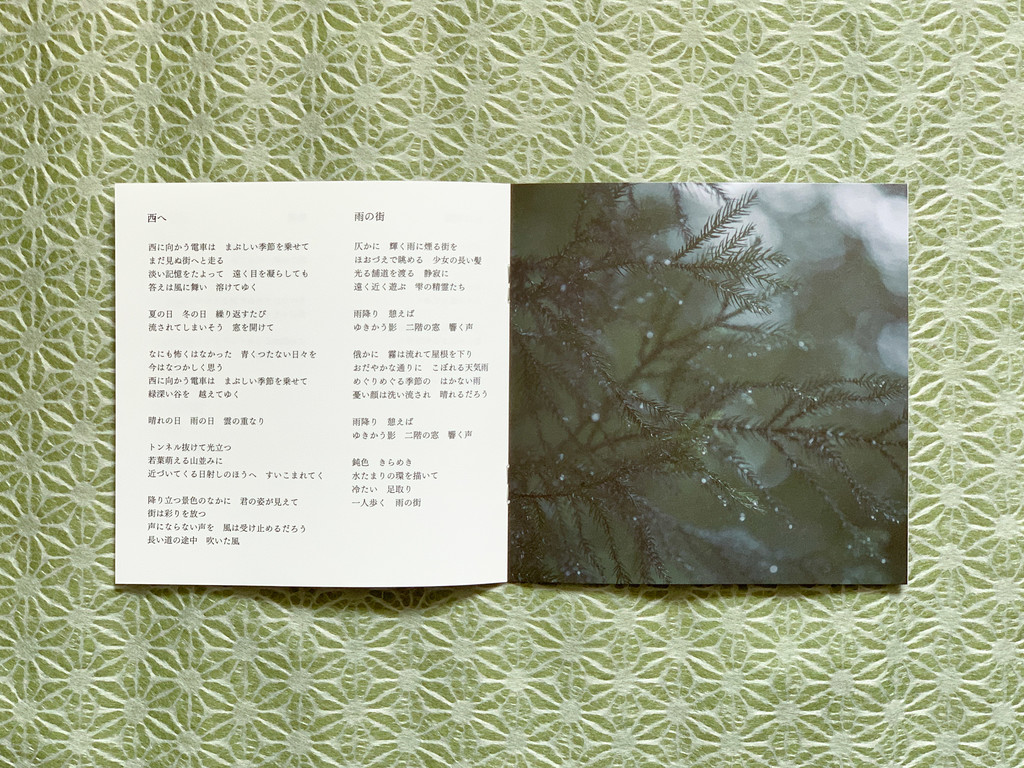 西へ
西に向かう電車は　まぶしい季節を乗せて
まだ見ぬ街へと走る
淡い記憶をたよって　遠く目を凝らしても
答えは風に舞い　溶けてゆく
夏の日　冬の日　繰り返すたび
流されてしまいそう　窓を開けて
なにも怖くはなかった　青くつたない日々を
今はなつかしく思う
西に向かう電車は　まぶしい季節を乗せて
緑深い谷を　越えてゆく
晴れの日　雨の日　雲の重なり
トンネル抜けて光立つ
若葉萌える山並みに
近づいてくる日射しのほうへ　すいこまれてく
降り立つ景色のなかに　君の姿が見えて
街は彩りを放つ
声にならない声を　風は受け止めるだろう
長い道の途中　吹いた風
雨の街
仄かに　輝く雨に煙る街を
ほおづえで眺める　少女の長い髪
光る舗道を渡る　静寂に
遠く近く遊ぶ　雫の精霊たち
雨降り　憩えば
ゆきかう影　二階の窓　響く声
俄かに　霧は流れて屋根を下り
おだやかな通りに　こぼれる天気雨
めぐりめぐる季節の　はかない雨
憂い顔は洗い流され　晴れるだろう
雨降り　憩えば
ゆきかう影　二階の窓　響く声
鈍色　きらめき
水たまりの環を描いて
冷たい　足取り
一人歩く　雨の街